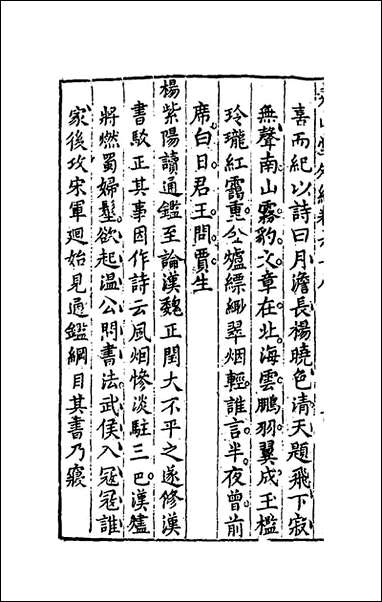 喜而紀以詩曰月澹長楊曉色清天題飛下寂
無聲南山霧豹文章在北海雲鵬羽翼成玉檻
玲瓏紅露重金爐縹緲翠烟輕誰言半夜曾前
席白日君王問賈生
楊紫陽讀通鑑至論漢魏正閏大不平之遂修漢
書駁正其事因作詩云風烟慘淡駐三巴漢燼
將燃蜀婦髽欲起温公問書法武侯入冠冠誰
家後攻宋軍廻始見通鑑綱目其書乃寢